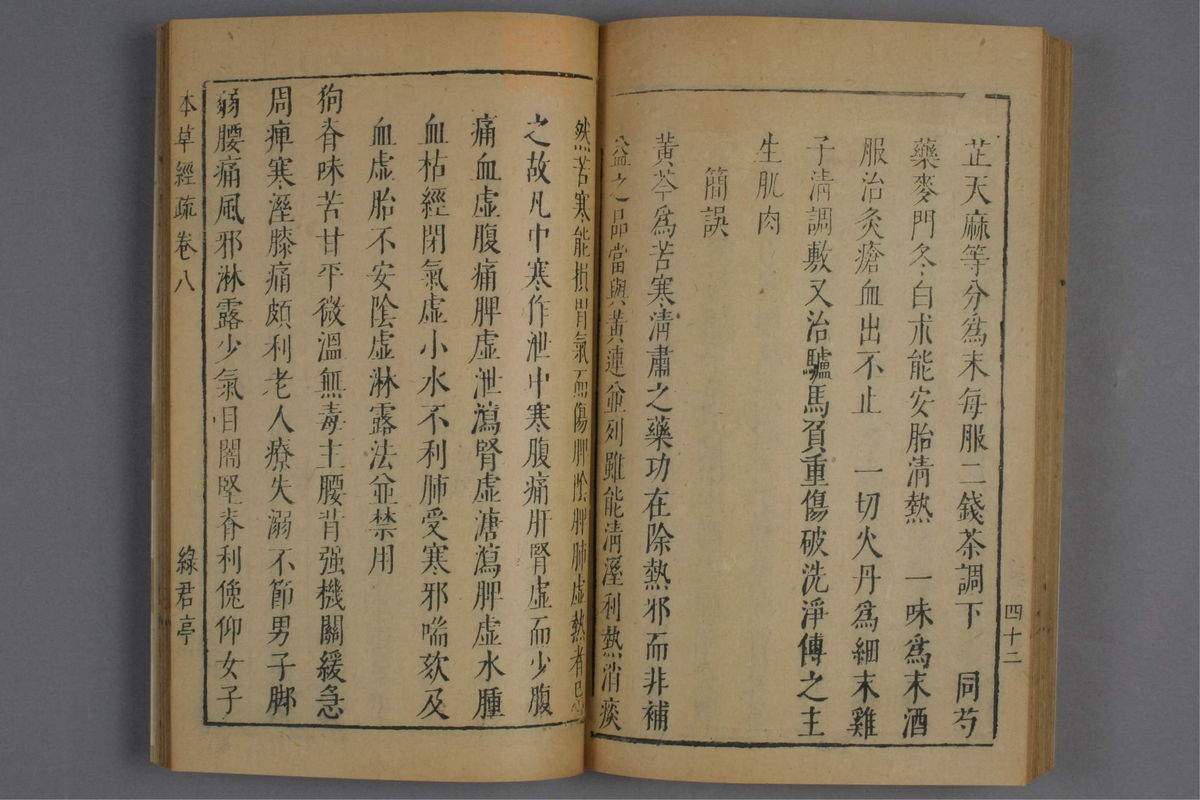 芷天麻等分爲末每服二錢茶調下　同芍
藥麥門冬白朮能安胎淸熱　一味爲末酒
服治灸瘡血出不止　一切火丹爲細末雞
子淸調敷又治驢馬負重傷破洗淨傅之主
生肌肉
簡誤
黃芩爲苦寒淸肅之藥功在除熱邪而非補
益之品當與黃連並列雖能淸溼利熱消痰
四十二
然苦寒能損胃氣而傷脾陰脾肺虛熱者忌
之故凡中寒作泄中寒腹痛肝腎虛而少腹
痛血虛腹痛脾虛泄瀉腎虛溏瀉脾虛水腫
血枯經閉氣虛小水不利肺受寒邪喘欬及
血虛胎不安陰虛淋露法並禁用
狗脊味苦甘平微溫無毒主腰背强機關緩急
周痺寒溼膝痛頗利老人療失溺不節男子脚
弱腰痛風邪淋露少氣目闇堅脊利俛仰女子
本草經疏卷八
綠君亭